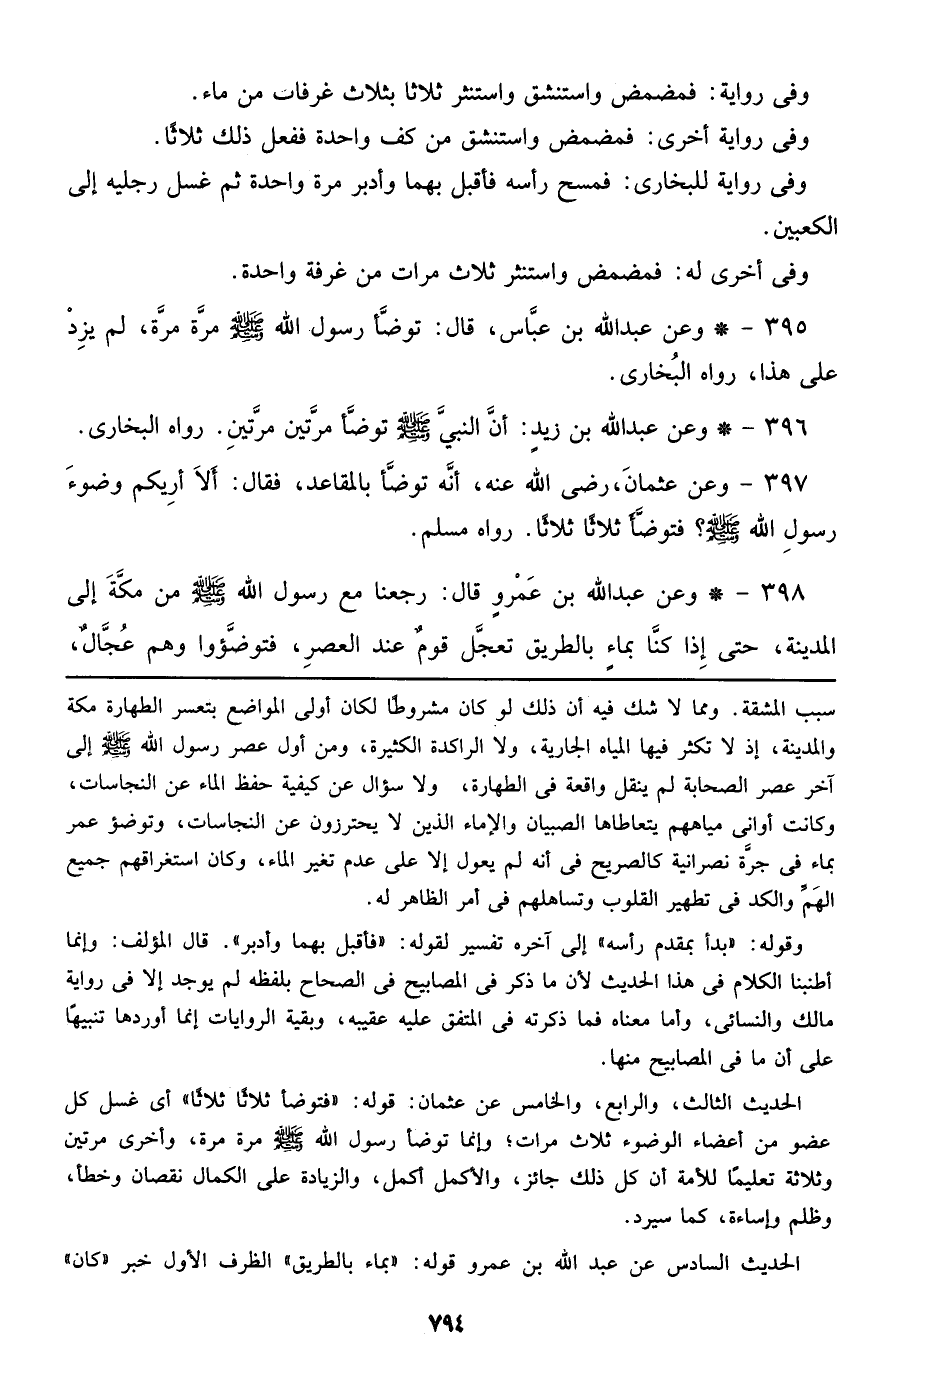 وفى رواية: فمضمض واستنشق واستنثر ثلاثا بثلاث غرفات من ماء.
وفى رواية أخرى: فمضمض واستنشق من كف واحدة ففعل ذلك ثلاثًا.
وفى رواية للبخارى: فمسح رأسه فأقبل بهما وأدبر مرة واحدة ثم غسل رجليه إلى
الكعبين.
وفى أخرى له: فمضمض واستنثر ثلاث مرات من غرفة واحدة.
٣٩٥ - * وعن عبدالله بن عبَّاس، قال: توضَّأ رسول الله ﷺ مرَّة مرَّة، لم يزِدْ
على هذا، رواه البُخارى.
٣٩٦ - * وعن عبدالله بن زيدٍ: أنَّ النبيَّ ﷺ توضَّأ مرَّتين مرَّتينِ. رواه البخارى.
٣٩٧ - وعن عثمانَ،رضى الله عنه، أنَّه توضَّأ بالمقاعد، فقال: أَلاَ أريكم وضوءَ
رسولِ الله ﷺ؟ فتوضَّأَ ثلاثًا ثلاثًا. رواه مسلم.
٣٩٨ - * وعن عبدالله بن عَمْروٍ قال: رجعنا مع رسول الله ﷺ من مكَّةَ إلى
المدينة، حتى إِذا كنَّا بماءٍ بالطريق تعجَّل قومٌ عند العصرِ، فتوضَّؤوا وهم عُجَّالٌ،
سبب المشقة. ومما لا شك فيه أن ذلك لو كان مشروطًا لكان أولى المواضع بتعسر الطهارة مكة
والمدينة، إذ لا تكثر فيها المياه الجارية، ولا الراكدة الكثيرة، ومن أول عصر رسول الله ﷺ إلى
آخر عصر الصحابة لم ينقل واقعة فى الطهارة، ولا سؤال عن كيفية حفظ الماء عن النجاسات،
وكانت أوانى مياههم يتعاطاها الصبيان والإماء الذين لا يحترزون عن النجاسات، وتوضؤ عمر
بماء فى جرَّة نصرانية كالصريح فى أنه لم يعول إلا على عدم تغير الماء، وكان استغراقهم جميع
الهَمِّ والكد فى تطهير القلوب وتساهلهم فى أمر الظاهر له.
وقوله: «بدأ بمقدم رأسه» إلى آخره تفسير لقوله: «فأقبل بهما وأدبر». قال المؤلف: وإنما
أطنبنا الكلام فى هذا الحديث لأن ما ذكر فى المصابيح فى الصحاح بلفظه لم يوجد إلا فى رواية
مالك والنسائى، وأما معناه فما ذكرته فى المتفق عليه عقيبه، وبقية الروايات إنما أوردها تنبيهًا
على أن ما فى المصابيح منها.
الحديث الثالث، والرابع، والخامس عن عثمان: قوله: «فتوضأ ثلاثًا ثلاثًا» أى غسل كل
عضو من أعضاء الوضوء ثلاث مرات؛ وإنما توضأ رسول الله ﷺ مرة مرة، وأخرى مرتين
وثلاثة تعليمًا للأمة أن كل ذلك جائز، والأكمل أكمل، والزيادة على الكمال نقصان وخطأ،
وظلم وإساءة، كما سيرد.
الحديث السادس عن عبد الله بن عمرو قوله: «بماء بالطريق» الظرف الأول خبر «كان»
٧٩٤